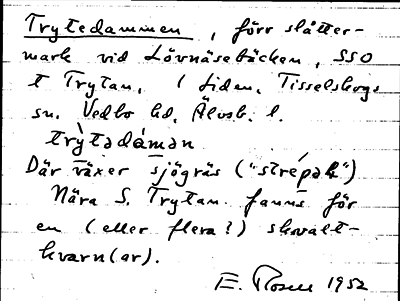 Trytedammen, förr slåtter-
mark vid Lövnäsebäcken, SSO
t Trytan, i Liden, Tisselskogs
sn. Vedbo hd, Älvsb. l.
trỳtadáman
Där växer sjögräs ("strépak")
Nära S. Trytan fanns för
en (eller flera?) skvalt-
kvarn(ar).
E. Rosell 1952